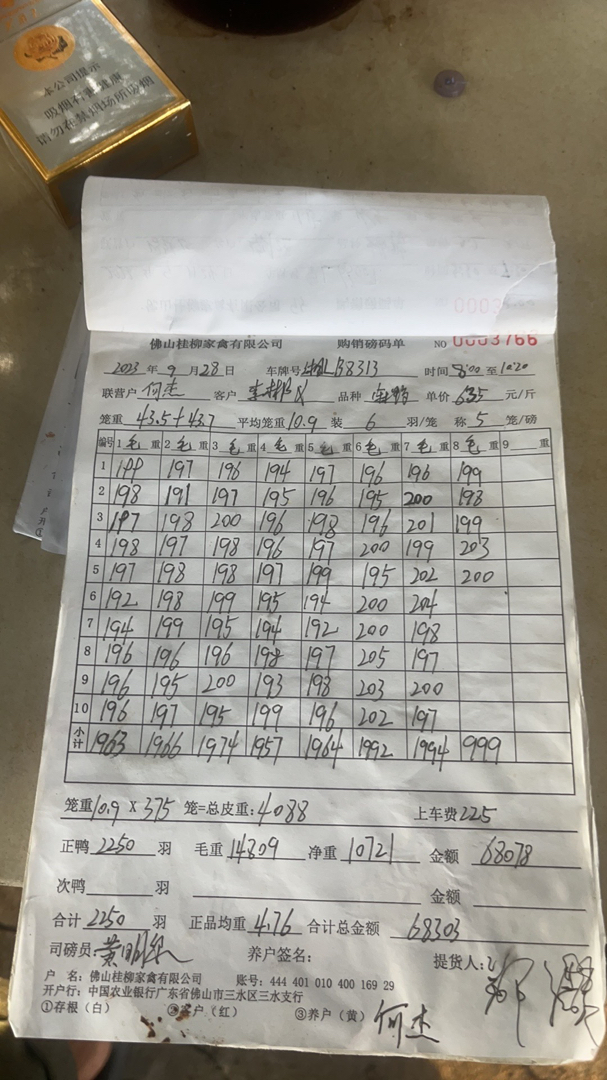 本公司提示
吸烟有害健康
请勿在禁烟场所吸烟
佛山桂柳家禽有限公司 购销磅码单 NO 0003766
2023 年 9 月 28 日 车牌号 B8313 时间 8:00 至 10:20
联营户 何杰 客户 品种 单价 6.35 元/斤
笼重 43.5+43.7 平均笼重 10.9 装 6 羽/笼 称 5 笼/磅
编号 1 毛 重 2 毛 重 3 毛 重 4 毛 重 5 毛 重 6 毛 重 7 毛 重 8 毛 重 9 重
1 199 197 196 194 197 196 196 199
2 198 191 197 195 196 195 200 193
3 197 198 200 196 198 196 201 199
4 198 197 198 196 197 200 199 203
5 197 198 198 197 199 195 202 200
6 192 198 199 195 194 200 204
7 194 199 195 194 192 200 198
8 196 196 196 198 197 205 197
9 196 195 200 193 198 203 200
10 196 197 195 199 196 202 197
小计 1963 1966 1974 1957 1964 1992 1994 999
笼重 10.9 X 375 笼=总皮重: 4088 上车费 225
正鸭 2250 羽 毛重 14809 净重 10721 金额 68078
次鸭 羽 金额
合计 2250 羽 正品均重 4.76 合计总金额 68303
司磅员: 黄明 养户签名: 提货人:
户 名: 佛山桂柳家禽有限公司 账号: 444 401 010 400 169 29
开户行: 中国农业银行广东省佛山市三水区三水支行
①存根(白) ②客户(红) ③养户(黄) 何杰